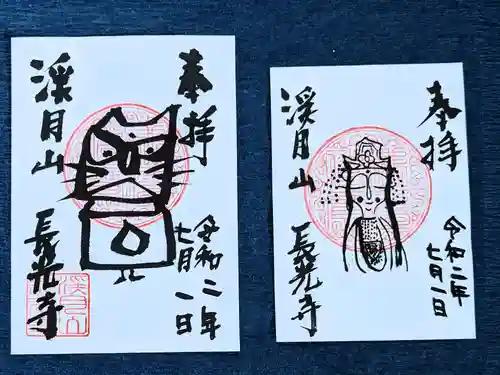 奉拝
渓月山
長光寺
令和二年
七月一日
奉拝
渓月山
長光寺
令和二年
七月一日